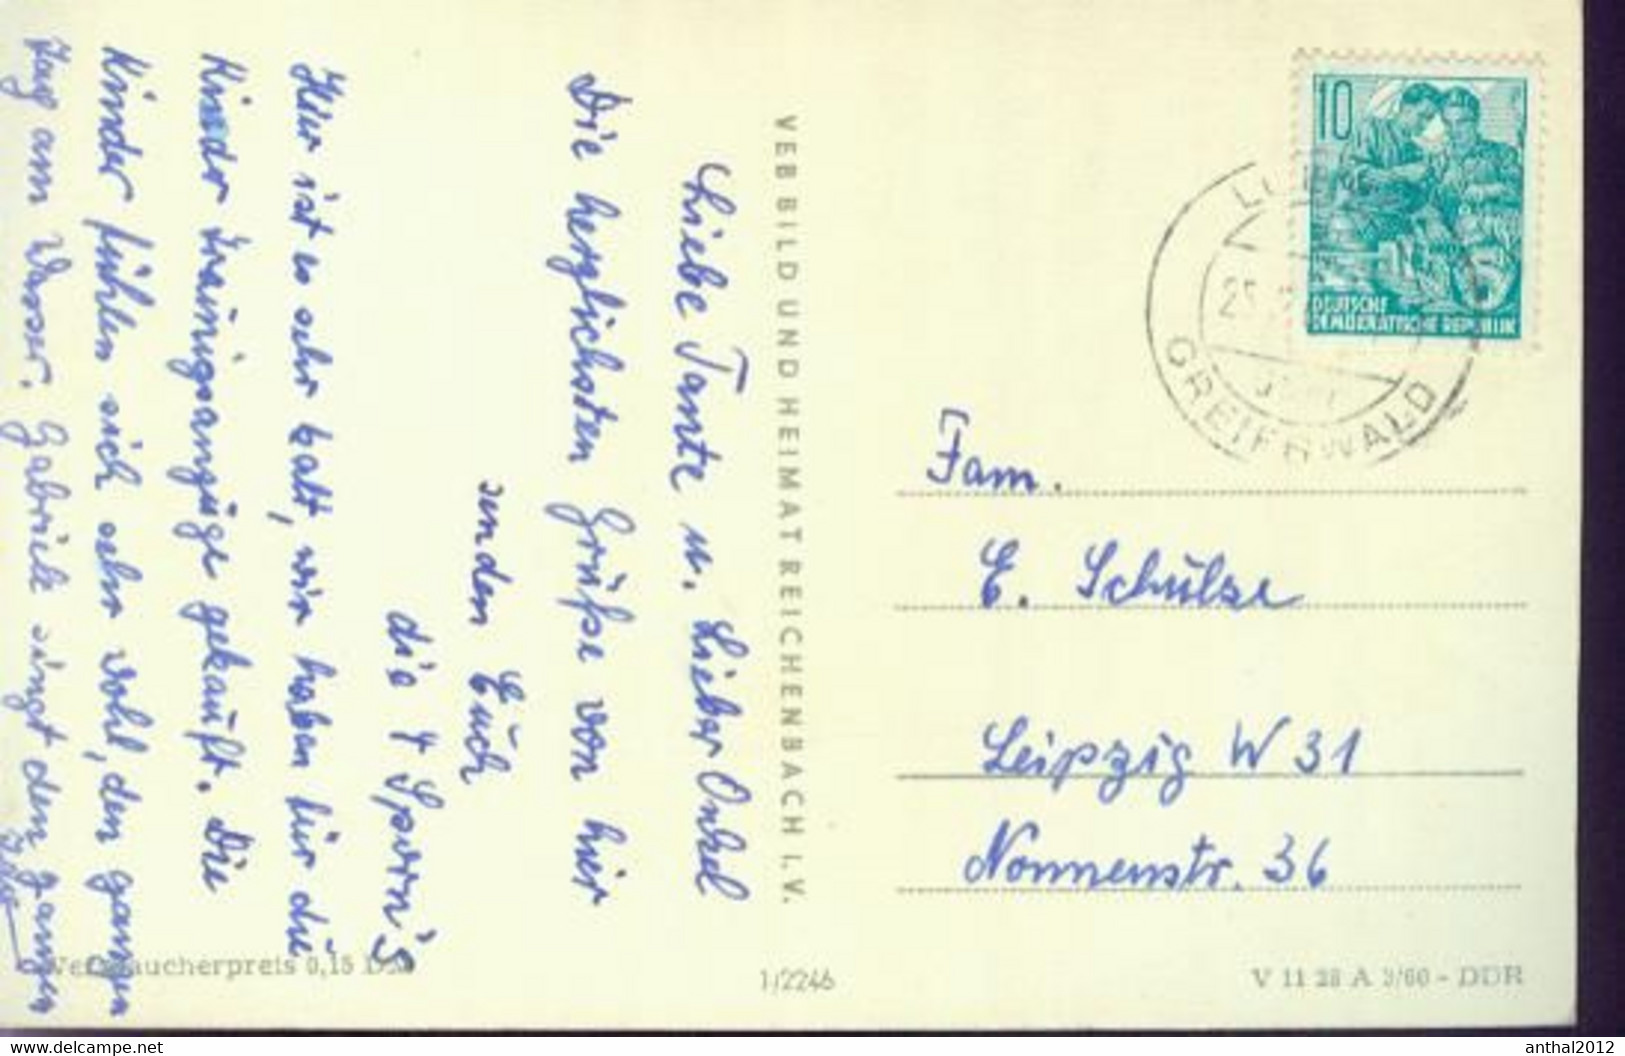 Liebe Tante u. Lieber Onkel
Die herzlichsten Grüße von hier
senden Euch
die 4 Sporn's
Hier ist es sehr kalt, wir haben für die
Kinder Trainigsanzüge gekauft. Die
Kinder fühlen sich sehr wohl, den ganzen
Tag am Wasser. Gabriele singt den ganzen
Tag
VEB BILD UND HEIMAT REICHENBACH I. V.
10
DEUTSCHE
DEMOKRATISCHE REPUBLIK
GREIFSWALD
Fam.
E. Schulze
Leipzig W 31
Nonnenstr. 36
Verbraucherpreis 0,15
1/2246
V 11 28 A 3/60 - DDR
www.delcampe.net
anthal2012